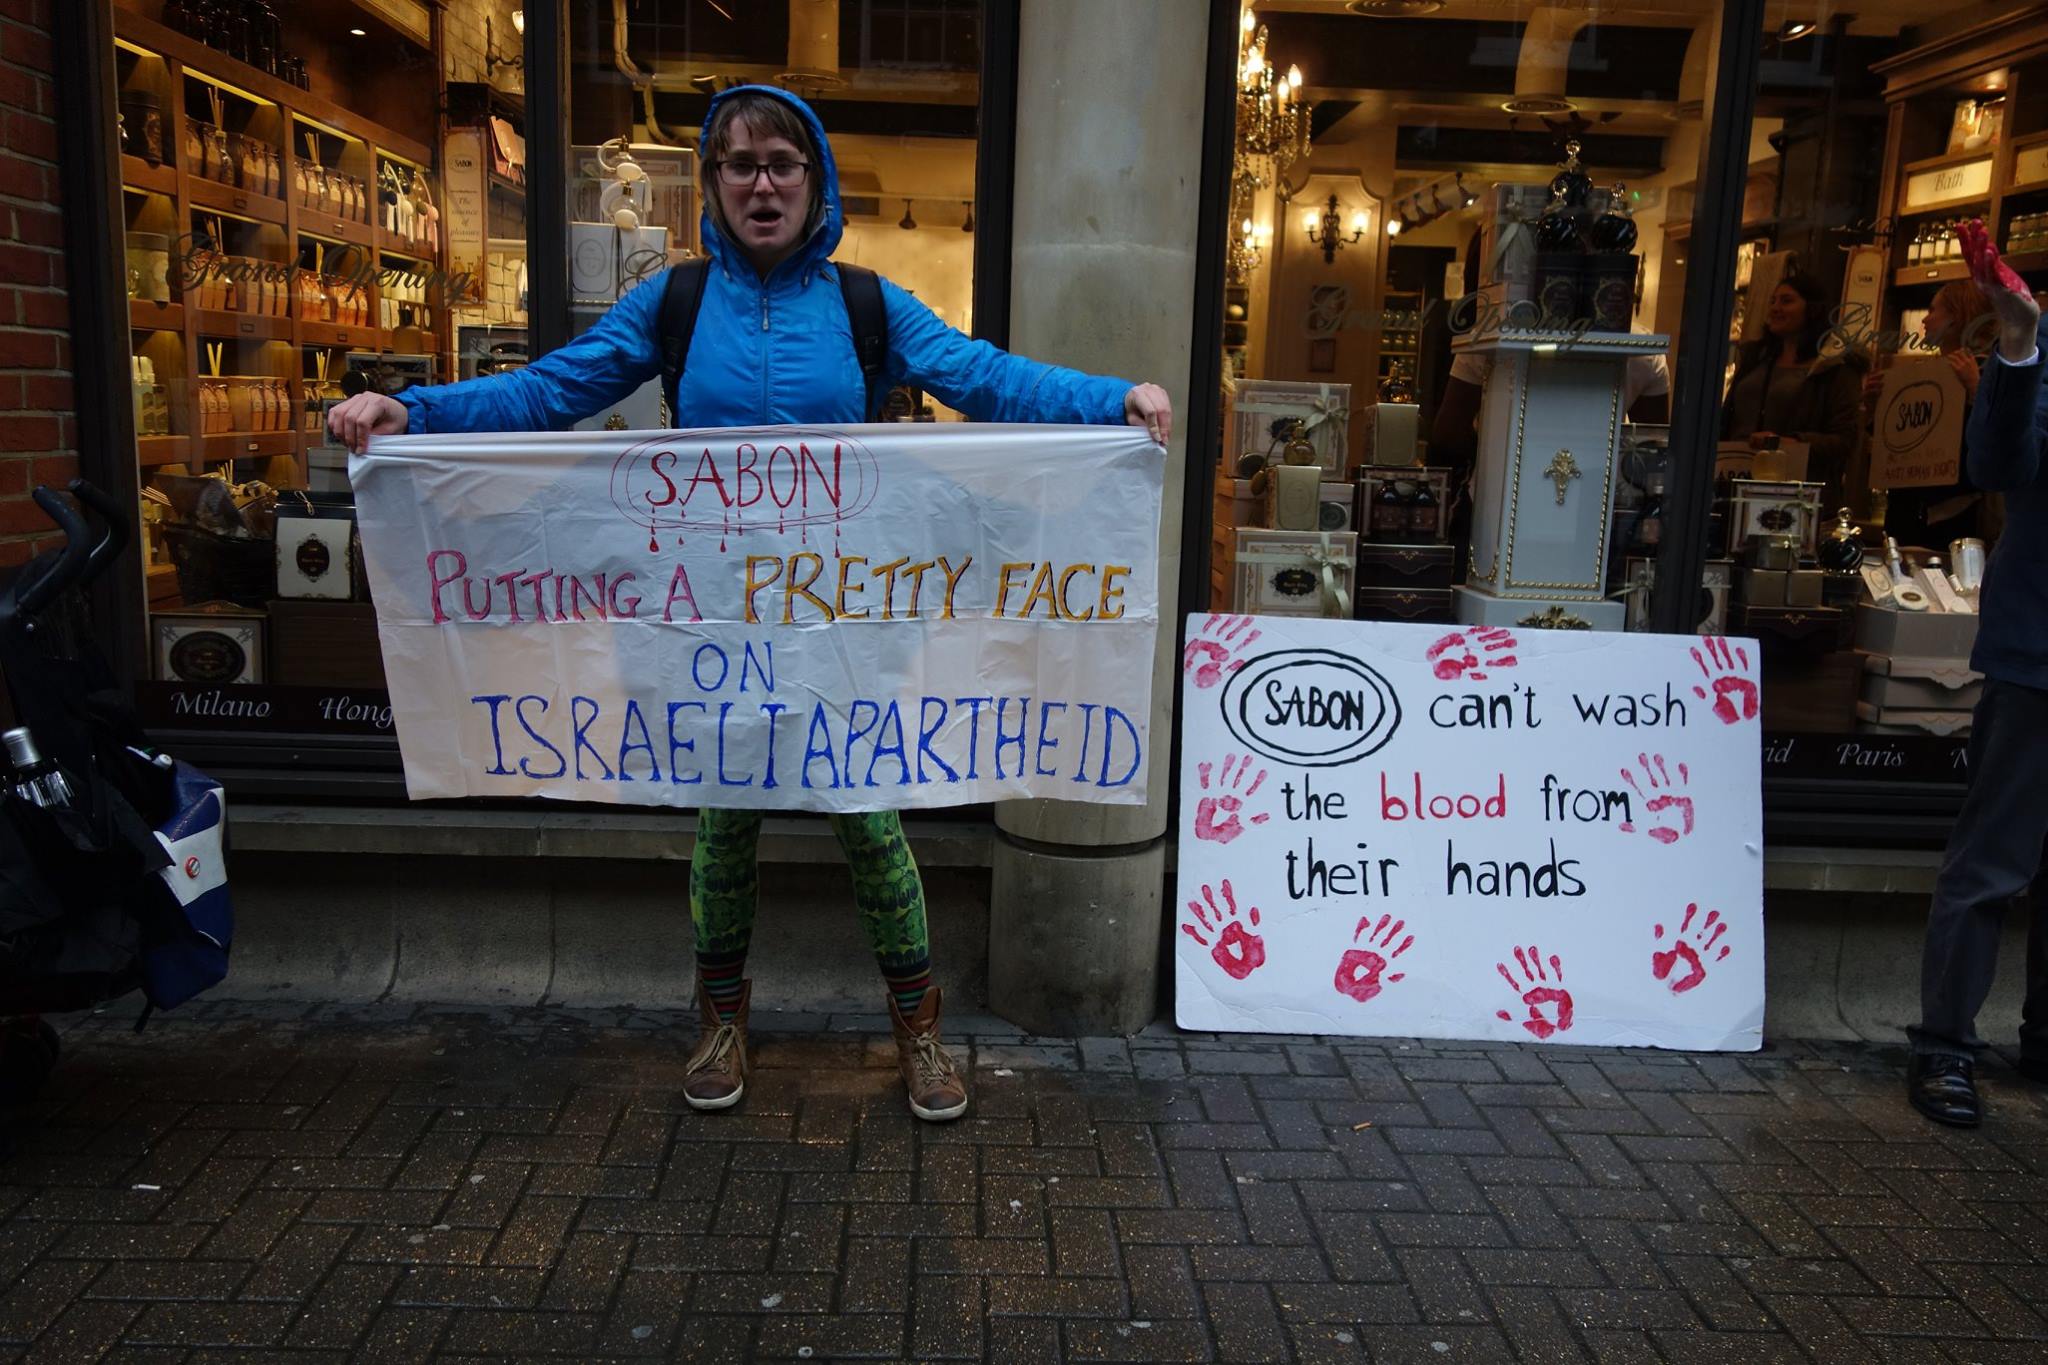 SABON
The
essence
of
pleasure
Grand Opening
SABON
PUTTING A PRETTY FACE
ON
ISRAELI APARTHEID
Milano Hong
Grand Opening
Bath
Grand
SABON
ANTI HUMAN RIGHTS
SABON can't wash
the blood from
their hands
Paris